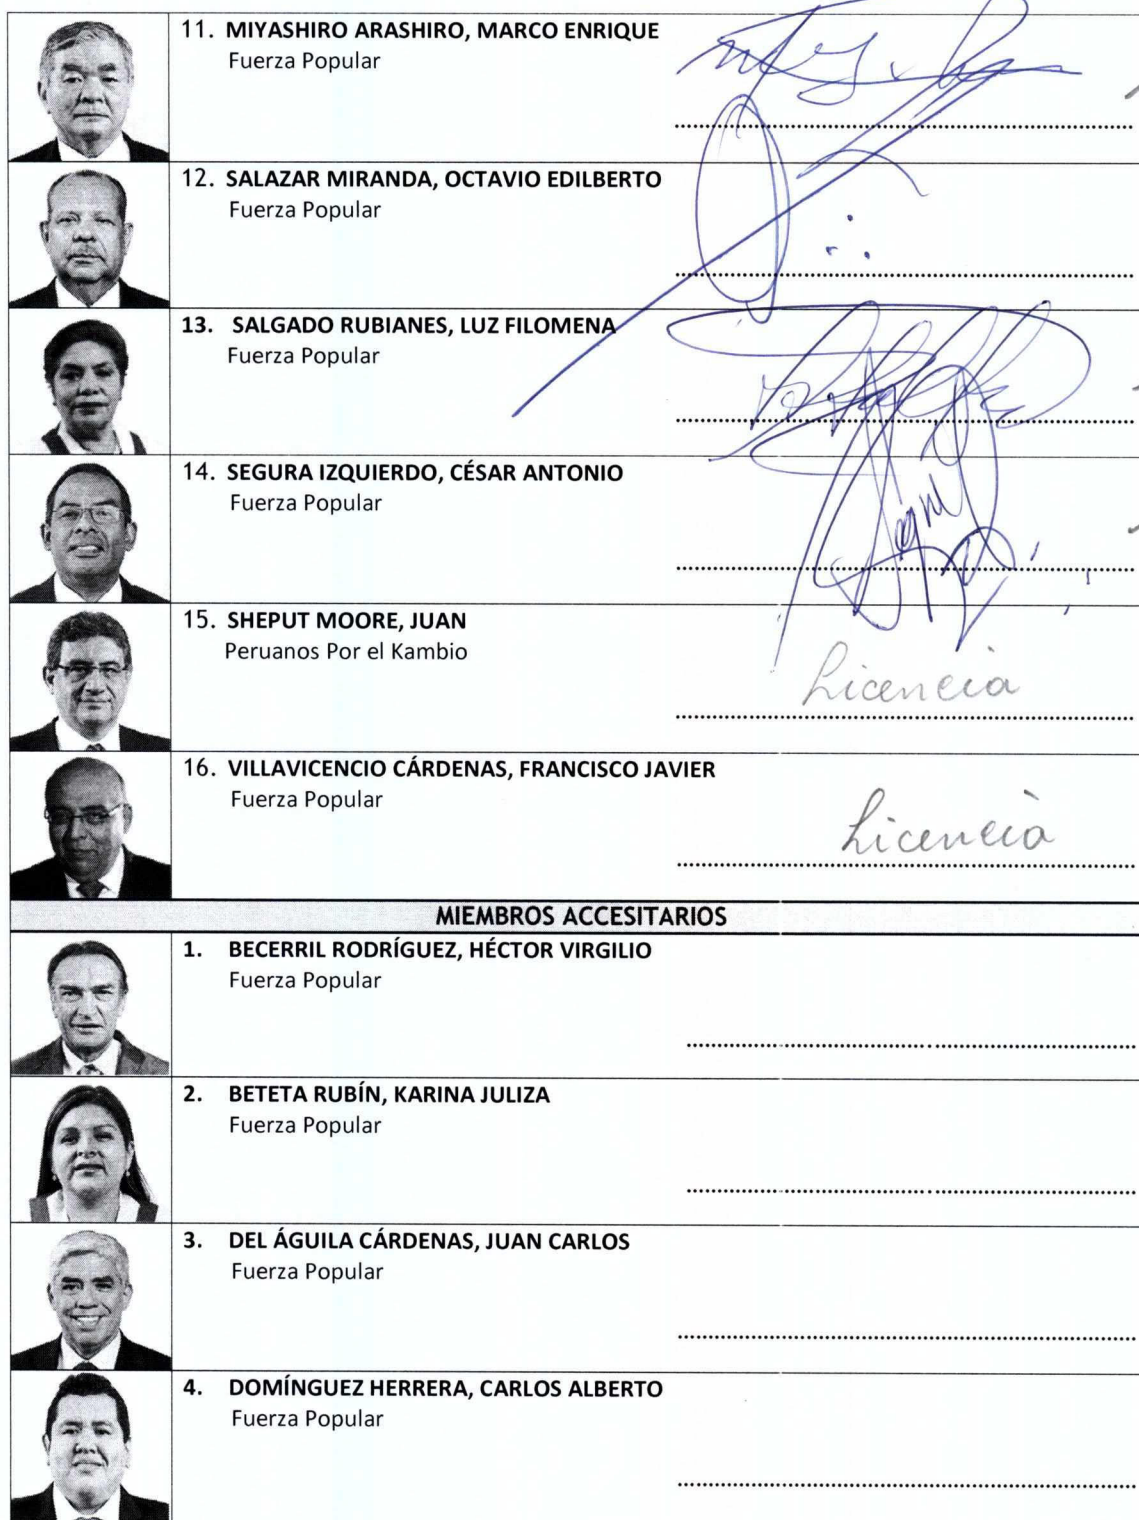 11. MIYASHIRO ARASHIRO, MARCO ENRIQUE
Fuerza Popular
12. SALAZAR MIRANDA, OCTAVIO EDILBERTO
Fuerza Popular
13. SALGADO RUBIANES, LUZ FILOMENA
Fuerza Popular
14. SEGURA IZQUIERDO, CÉSAR ANTONIO
Fuerza Popular
15. SHEPUT MOORE, JUAN
Peruanos Por el Kambio
Licencia
16. VILLAVICENCIO CÁRDENAS, FRANCISCO JAVIER
Fuerza Popular
Licencia
MIEMBROS ACCESITARIOS
1. BECERRIL RODRÍGUEZ, HÉCTOR VIRGILIO
Fuerza Popular
2. BETETA RUBÍN, KARINA JULIZA
Fuerza Popular
3. DEL ÁGUILA CÁRDENAS, JUAN CARLOS
Fuerza Popular
4. DOMÍNGUEZ HERRERA, CARLOS ALBERTO
Fuerza Popular